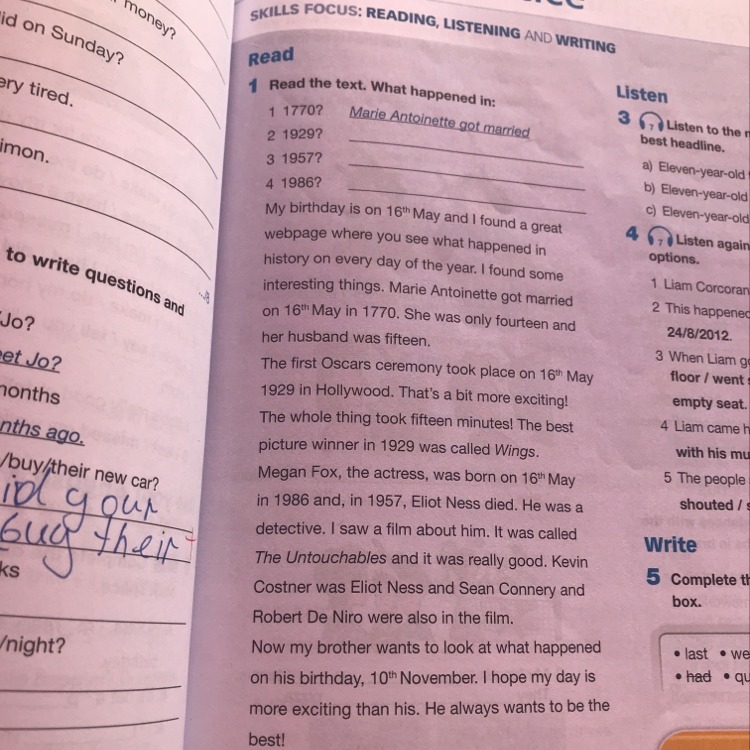 money?
id on Sunday?
ery tired.
imon.
to write questions and
Jo?
eet Jo?
months
nths ago.
/buy/their new car?
id your
buy their
ks
/night?
SKILLS FOCUS: READING, LISTENING AND WRITING
Read
1 Read the text. What happened in:
1 1770? Marie Antoinette got married
2 1929?
3 1957?
4 1986?
My birthday is on 16th May and I found a great
webpage where you see what happened in
history on every day of the year. I found some
interesting things. Marie Antoinette got married
on 16th May in 1770. She was only fourteen and
her husband was fifteen.
The first Oscars ceremony took place on 16th May
1929 in Hollywood. That's a bit more exciting!
The whole thing took fifteen minutes! The best
picture winner in 1929 was called Wings.
Megan Fox, the actress, was born on 16th May
in 1986 and, in 1957, Eliot Ness died. He was a
detective. I saw a film about him. It was called
The Untouchables and it was really good. Kevin
Costner was Eliot Ness and Sean Connery and
Robert De Niro were also in the film.
Now my brother wants to look at what happened
on his birthday, 10th November. I hope my day is
more exciting than his. He always wants to be the
best!
Listen
3 7 Listen to the
best headline.
a) Eleven-year-old
b) Eleven-year-old
c) Eleven-year-old
4 7 Listen again
options.
1 Liam Corcoran
2 This happened
24/8/2012.
3 When Liam
floor / went
empty seat.
4 Liam came
with his mu
5 The people
shouted /
Write
5 Complete th
box.
• last • we
• had • qu